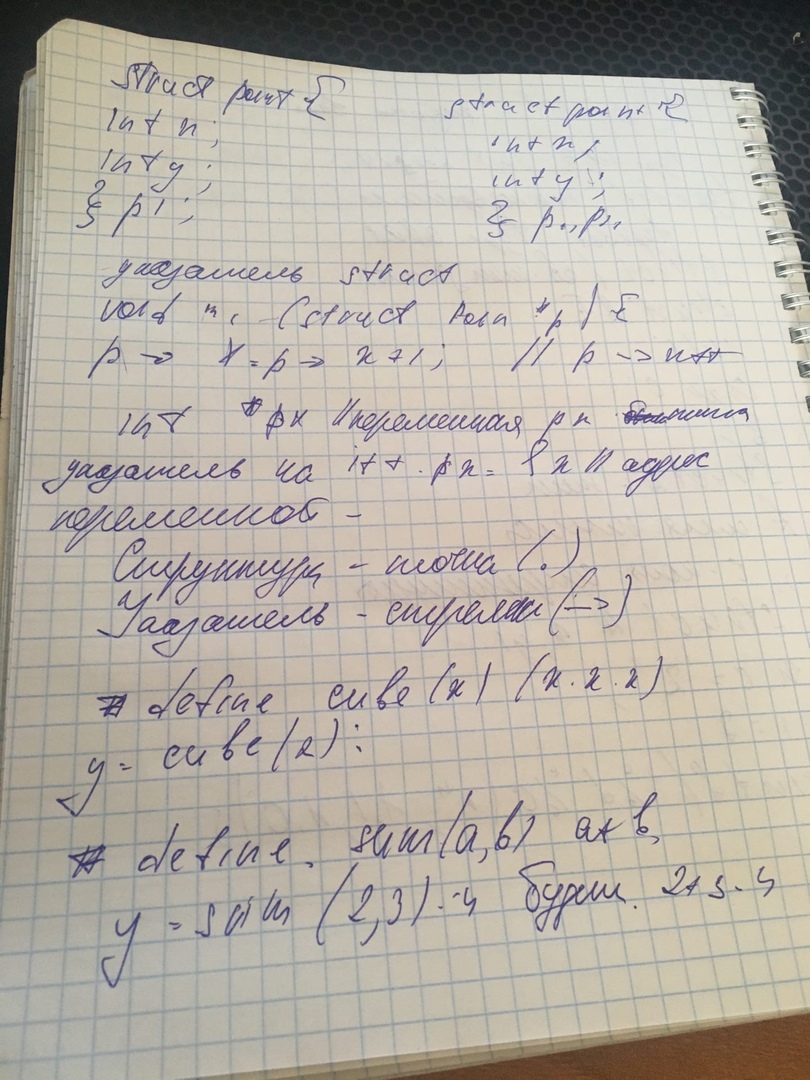 struct point {
int x;
int y;
} p1;
struct point {
int x;
int y;
} p1, p2,
указатель struct
void (struct *p) {
p -> x = p -> x + 1; // p -> x++
int *px // переменная px
указатель на int. px = &x // адрес
переменной -
Структура - точка (.)
Указатель - стрелка (->)
# define cube (x) (x·x·x)
y = cube (2);
# define sum (a, b) a + b
y = sum (2,3) · 4 будет 2 + 3 · 4